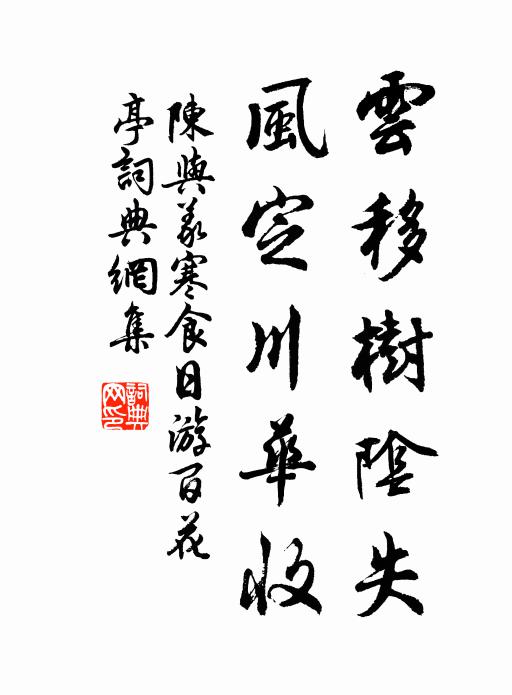 雲移樹陰失
風定川華收
陳與義寒食日游百花
亭詞典網集
詞典網印